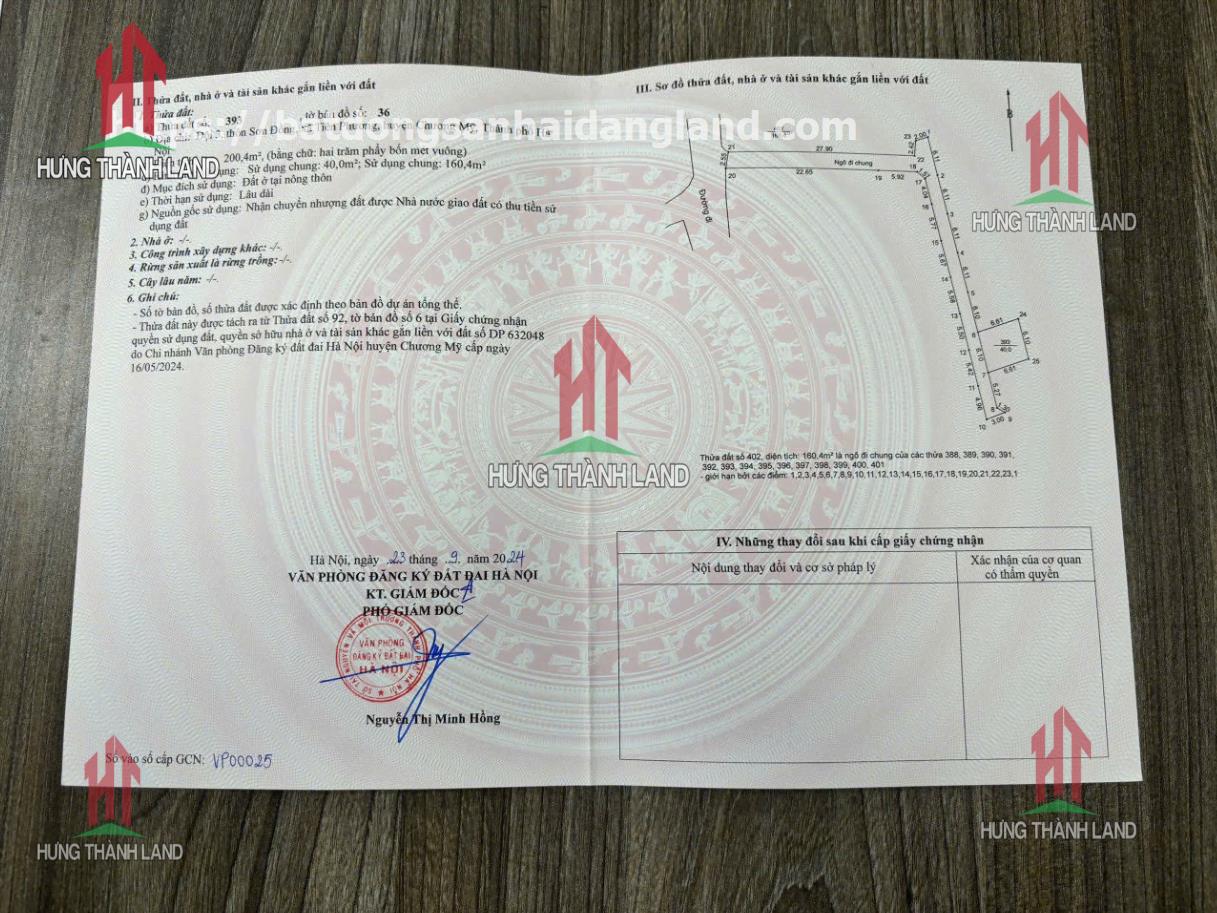 II. Thửa đất, nhà ở và tài sản khác gắn liền với đất
Thửa đất:
Thửa đất số: 393, tờ bản đồ số: 36
thôn Sơn Đồng, Tiên Phương, huyện Chương Mỹ, Thành phố Hà
Nội
200,4m², (bằng chữ: hai trăm phẩy bốn mét vuông)
dụng: Sử dụng chung: 40,0m²; Sử dụng chung: 160,4m²
d) Mục đích sử dụng: Đất ở tại nông thôn
e) Thời hạn sử dụng: Lâu dài
g) Nguồn gốc sử dụng: Nhận chuyển nhượng đất được Nhà nước giao đất có thu tiền sử
dụng đất
2. Nhà ở: -/-.
3. Công trình xây dựng khác: -/-.
4. Rừng sản xuất là rừng trồng: -/-.
5. Cây lâu năm: -/-.
6. Ghi chú:
- Số tờ bản đồ, số thửa đất được xác định theo bản đồ dự án tổng thể.
- Thửa đất này được tách ra từ Thửa đất số 92, tờ bản đồ số 6 tại Giấy chứng nhận
quyền sử dụng đất, quyền sở hữu nhà ở và tài sản khác gắn liền với đất số DP 632048
do Chi nhánh Văn phòng Đăng ký đất đai Hà Nội huyện Chương Mỹ cấp ngày
16/05/2024.
Hà Nội, ngày 23 tháng 9 năm 2024
VĂN PHÒNG ĐĂNG KÝ ĐẤT ĐAI HÀ NỘI
KT. GIÁM ĐỐC
PHÓ GIÁM ĐỐC
VĂN PHÒNG
ĐĂNG KÝ ĐẤT ĐAI
HÀ NỘI
SỞ TÀI NGUYÊN VÀ MÔI TRƯỜNG THÀNH PHỐ HÀ NỘI
Nguyễn Thị Minh Hồng
Số vào sổ cấp GCN: VP00025
III. Sơ đồ thửa đất, nhà ở và tài sản khác gắn liền với đất
B
21
27.90
23
2.00
1
2.55
2.42
6.11
Ngõ đi chung
22
20
22.65
19
5.92
18
17
2
Đường đi
16
6.11
3
5.77
15
6.11
4
5.67
6.11
14
5
5.58
13
6.10
5.50
6
6.61
24
12
6.10
393
40,0
6.10
5.42
7
6.61
25
11
5.27
4.96
8
10
3.00
9
Thửa đất số 402, diện tích: 160,4m² là ngõ đi chung của các thửa 388, 389, 390, 391,
392, 393, 394, 395, 396, 397, 398, 399, 400, 401
- giới hạn bởi các điểm: 1,2,3,4,5,6,7,8,9,10,11,12,13,14,15,16,17,18,19,20,21,22,23,1
IV. Những thay đổi sau khi cấp giấy chứng nhận
Nội dung thay đổi và cơ sở pháp lý
Xác nhận của cơ quan
có thẩm quyền
https://batdongsanhaidangland.com
HƯNG THÀNH LAND
HƯNG THÀNH LAND
HƯNG THÀNH LAND
HƯNG THÀNH LAND
HƯNG THÀNH LAND